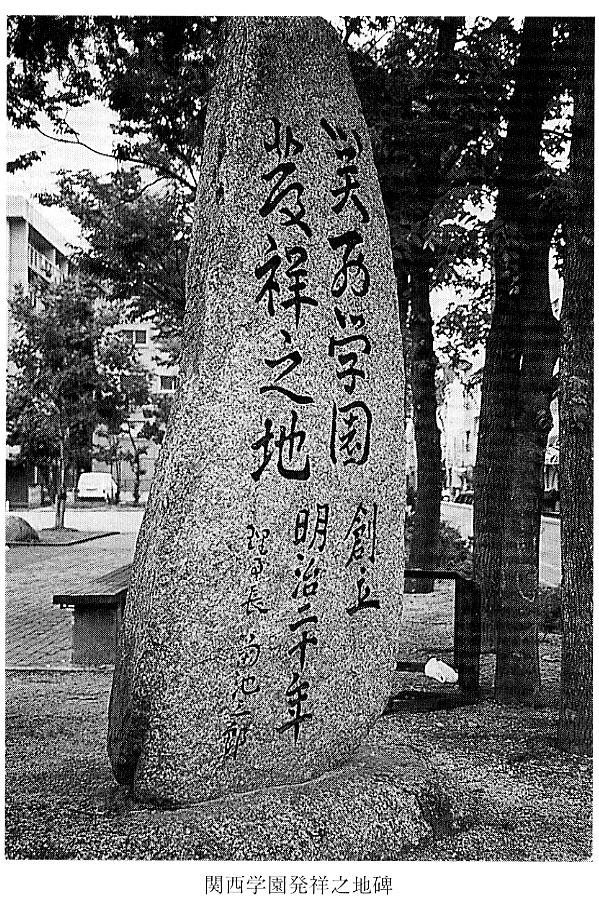 関西学園
発祥之地
創立
明治二十年
理事長 菊池
関西学園発祥之地碑